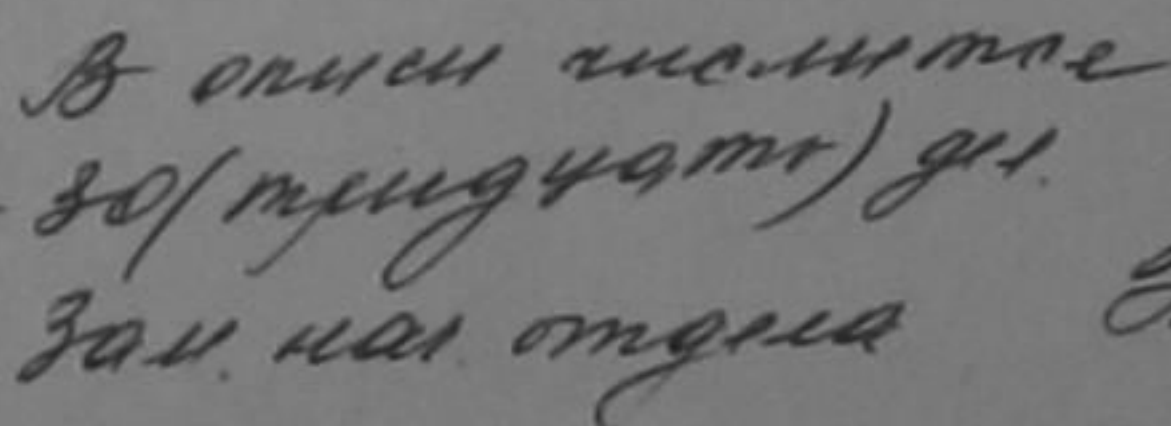 В описи числится
30 (тридцать) дел.
Зам. нач. отдела